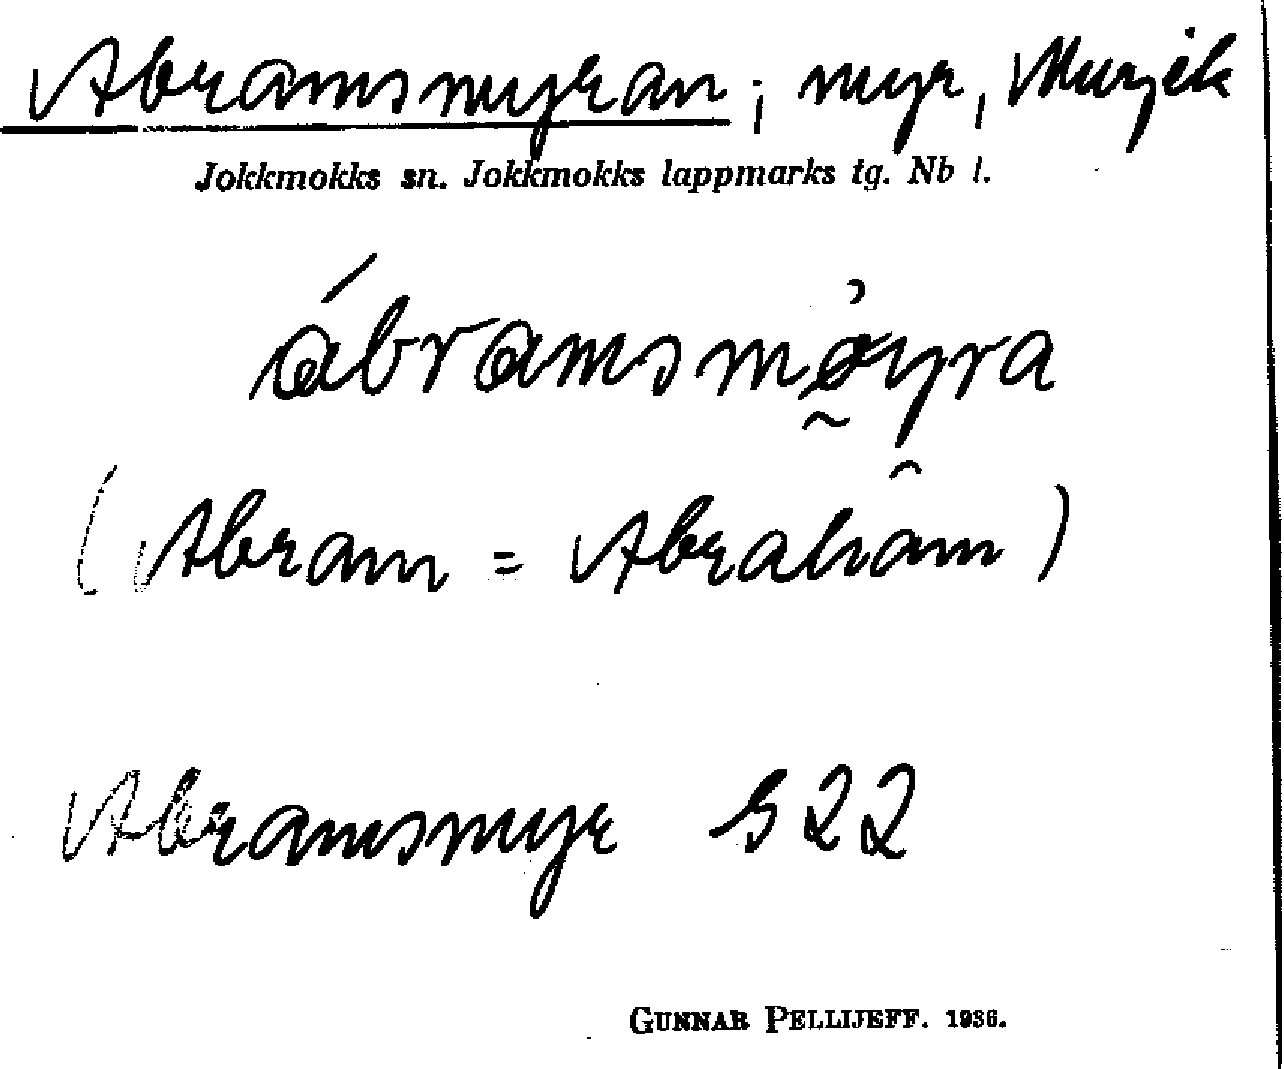 Abramsmyran; myr, Murjek
Jokkmokks sn. Jokkmokks lappmarks tg. Nb l.
ábramsmøyra
(Abram = Abraham)
Abramsmyr S 22
GUNNAR PELLIJEFF. 1936.